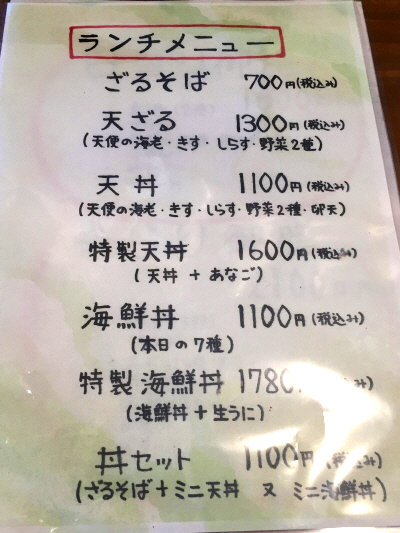 ランチメニュー
ざるそば 700円(税込み)
天ざる 1300円(税込み)
(天使の海老・きす・しらす・野菜2種)
天丼 1100円(税込み)
(天使の海老・きす・しらす・野菜2種・卵天)
特製天丼 1600円(税込み)
(天丼+あなご)
海鮮丼 1100円(税込み)
(本日の7種)
特製海鮮丼 1780円(税込み)
(海鮮丼+生うに)
丼セット 1100円(税込み)
(ざるそば+ミニ天丼 又 ミニ海鮮丼)